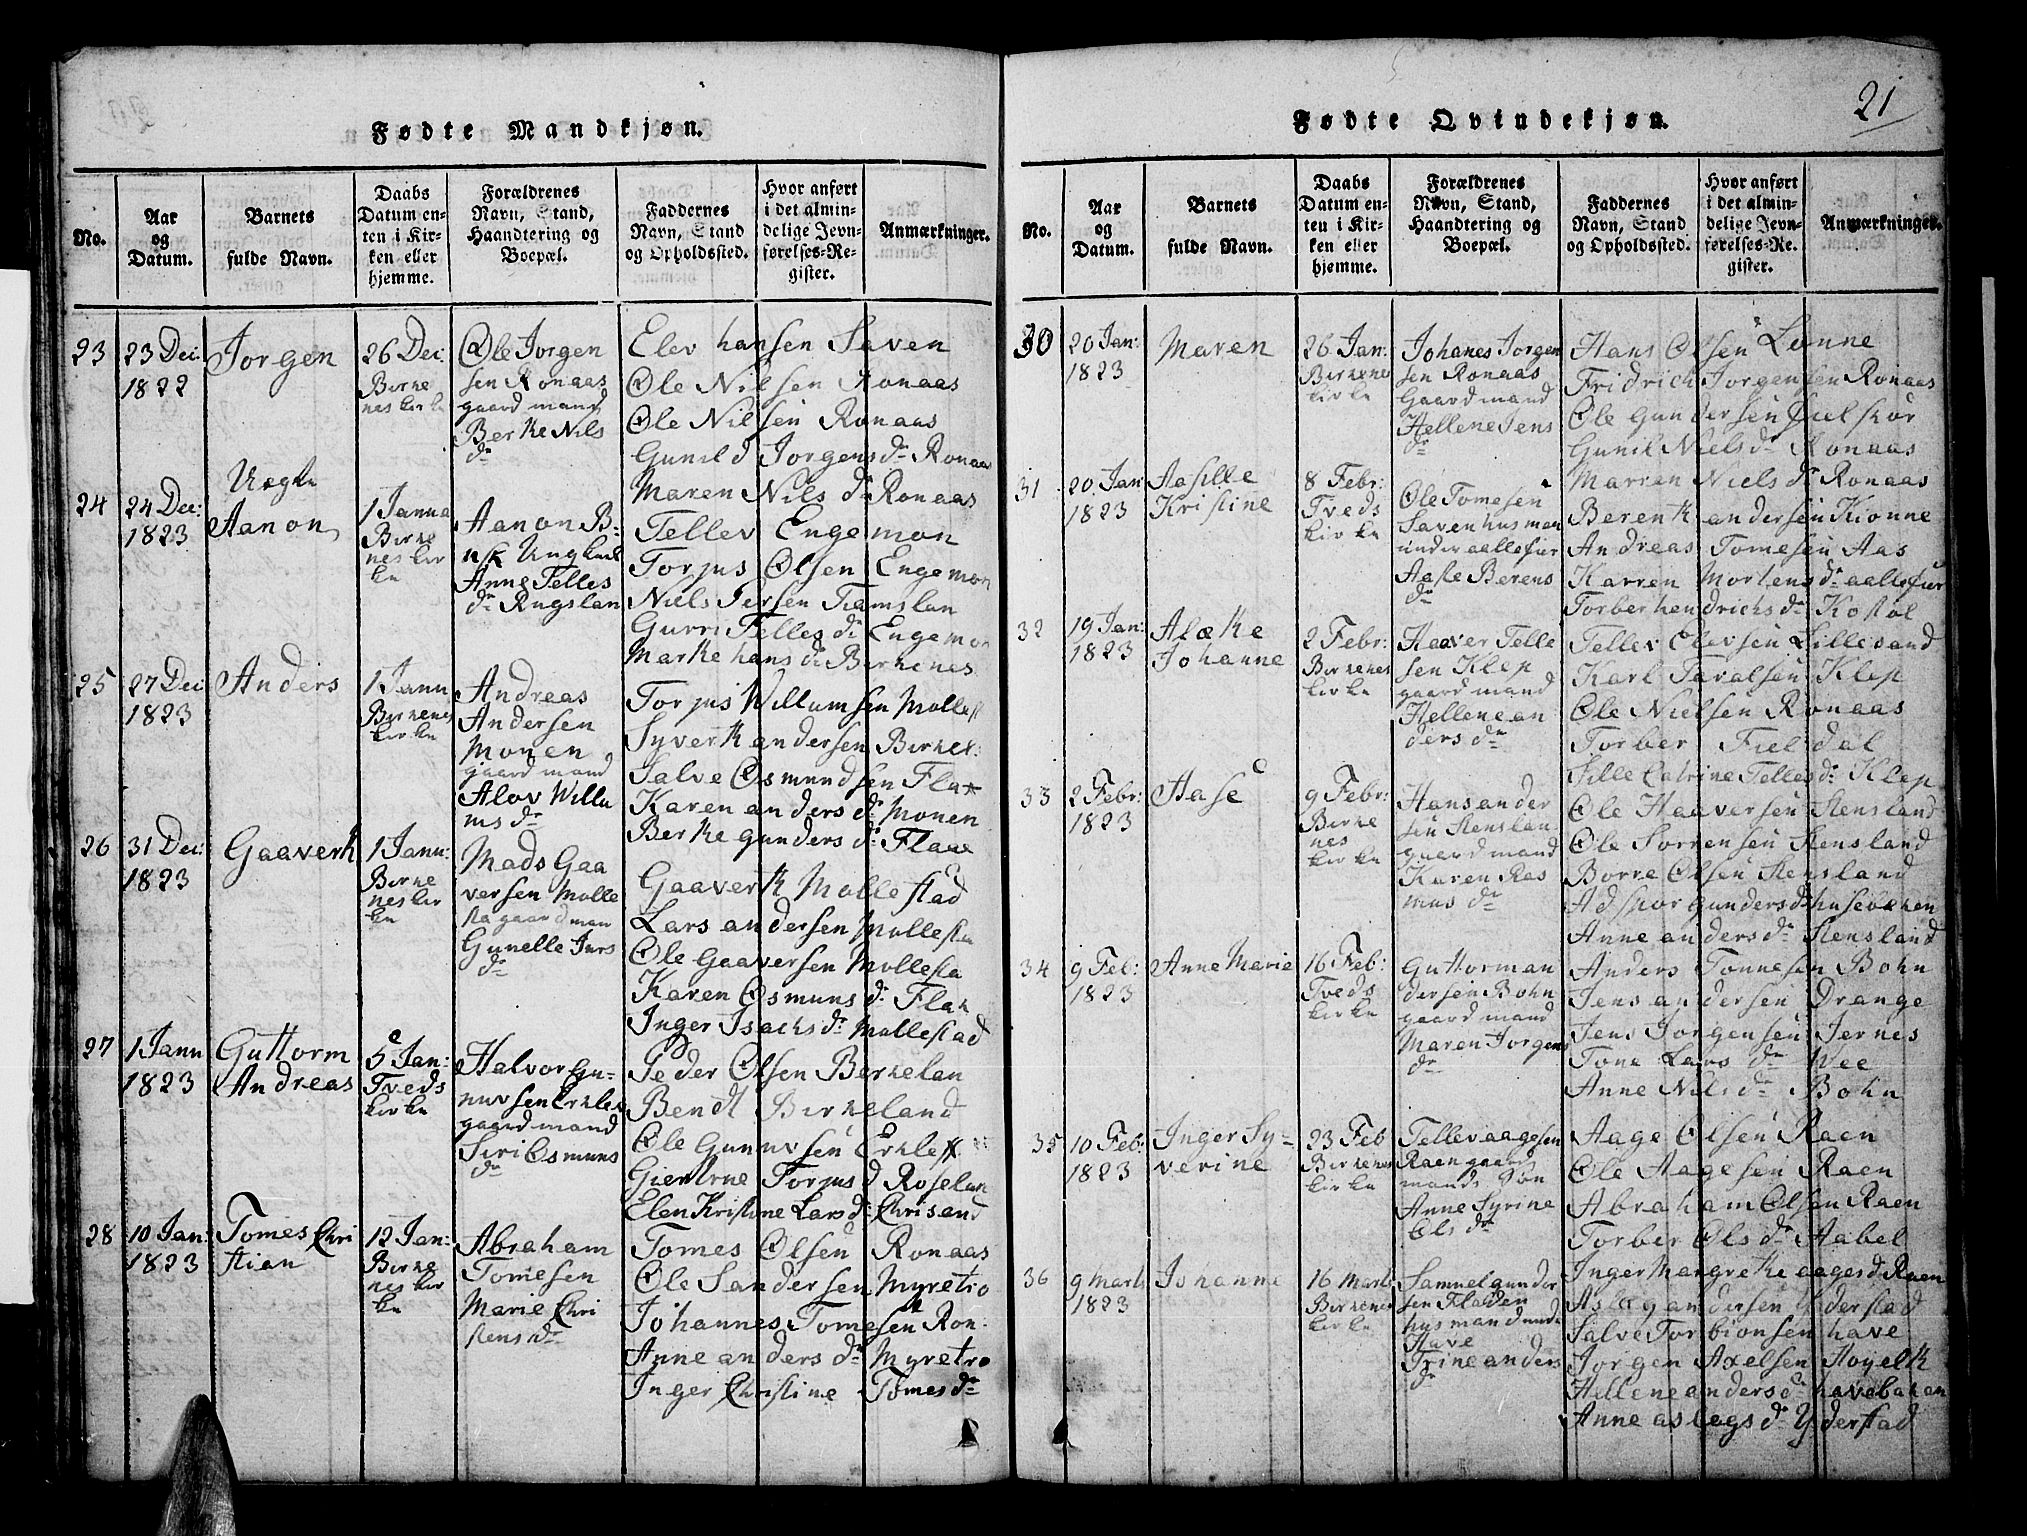 Fødte Mandkjøn.
No.
Aar og Datum.
Barnets fulde Navn.
Daabs Datum enten i Kirken eller hjemme.
Forældrenes Navn, Stand, Haandtering og Boepæl.
Faddernes Navn, Stand og Opholdssted.
Hvor anført i det almindelige Jevnførelses-Register.
Anmærkninger.
23
23 Dec:
1822
Jorgen
26 Dec:
Birke
nes kirke
Ole Jorgen
sen Ronaas
gaard mand
Berke Nils
dr
Elev hansen Saven
Ole Nilsen Ronaas
Ole Nilsen Ronaas
Gunild Jorgens dr Ronaas
Maren Nils dr Ronaas
24
24 Dec:
1823
Uægte
Aanon
1 Janua
Birke
nes kir
ke
Aanon B=
Ungkarl
Anne Telles
dr Rugslan
Tellev Engemon
Torjus Olsen Engemon
Niels Jersen Tamslan
Gurri Telles dr Engemon
Marke hans dr Birkenes
25
27 Dec
1823
Anders
1 Janu
Birkenes
kirke
Andreas
Andersen
Monen
gaard mand
Alov Willu
ms dr
Torjus Willumsen Mollest
Syverk andersen Birkel:
Salve Osmundsen Flak
Karen anders dr Monen
Berke gunders dr Flake
26
31 Dec:
1823
Gaaverk
1 Janu:
Birke
nes kir
ke
Mads Gaa
versen Molle
sta gaard man
Gunelle Jurs
dr
Gaaverk Mollestad
Lars andersen Mollesta
Ole Gaaversen Mollesta
Karen Osmuns dr Flak
Inger Isachs dr Mollestad
27
1 Janu
1823
Guttorm
Andreas
5 Jan:
Tveds
kirke
Halvor Gu=
nuvsen Erkles
gaard mand
Siri Osmuns
dr
Peder Olsen Berkelan
Bendt Birkeland
Ole Gunuvsen Erkles
Torjus d Roselan
Elen Kristine Lars dr Chrisand
28
10 Jan:
1823
Tomes Chri
stian
12 Jan:
Birke
nes kir
ke
Abraham
Tomesen
Marie Chri
stens dr
Tomes Olsen Ronaas
Ole Sandersen Myretro
Johannes Tomesen Ron.
Anne anders dr Myretro
Inger Christine Tomes dr
21
Fødte Qvindekjøn.
No.
Aar og Datum.
Barnets fulde Navn.
Daabs Datum enten i Kirken eller hjemme.
Forældrenes Navn, Stand, Haandtering og Boepæl.
Faddernes Navn, Stand og Opholdssted.
Hvor anført i det almindelige Jevnførelses-Register.
Anmærkninger.
30
20 Jan:
1823
Maren
26 Jan:
Birkenes
kirke
Johanes Jorgen
sen Ronaas
Gaard mand
Hellene Jens
dr
Hans Olsen Lonne
Fridrich Jorgensen Ronaas
Ole Gundersen Fielskor
Gunil Niels dr Ronaas
Marren Niels dr Ronaas
31
20 Jan
1823
Aasille
Kristine
8 Febr:
Tveds
kirke
Ole Tomesen
Saven husman
under aallefiær
Aase Berens
dr
Berentk andersen Kionne
Andreas Tomesen Aas
Karren Mortens dr aallefiær
Torber hendrichs dr Kostol
32
19 Jan:
1823
Alæke
Johanne
2 Febr:
Birkenes
kirke
Haaver Telle
sen Klep
gaard mand
Hellene an
ders dr
Tellev Olevsen Lillesand
Karl Taralsen Klep
Ole Nielsen Ronaas
Torber Fieldal
Sille Catrine Telles dr Klep
33
2 Febr:
1823
Aase
9 Febr:
Birke
nes
kirke
Hans ander
sen Stenslan
gaard mand
Karen Ras
mus dr
Ole Haaversen Stensland
Ole Sorrensen Stensland
Borre Olsen Stensland
Adskor gunders d husevaken
Anne anders dr Stensland
34
9 Feb:
1823
Anne Marie
16 Feb:
Tveds
kirke
Guttorm an
dersen Bohn
gaard mand
Maren Jorgens
dr
Anders Tonnesen Bohn
Jens andersen Drange
Jens Jorgensen Jernes
Tone Lars dr Vee
Anne Nils dr Bohn
35
10 Feb:
1823
Inger Sy=
verine
23 Feb
Birkenes
kirke
Tellev aagesen
Raen gaard
mands Søn
Anne Syrine
Ols dr
Aage Olsen Raen
Ole Aagesen Raen
Abraham Olsen Raen
Torber Ols dr Aabel
Inger Margretke aages d Raen
36
9 Marts
1823
Johanne
16 Marts
Birkenes
kirke
Samuel gunder
sen Fladen
husmand unde
Have
Trine anders
dr
Aslag andersen Yderstad
Salve Torbionsen have
Jorgen Axelsen Hoyelk
Hellene anders d havebaken
Anne aslags d Yderstad